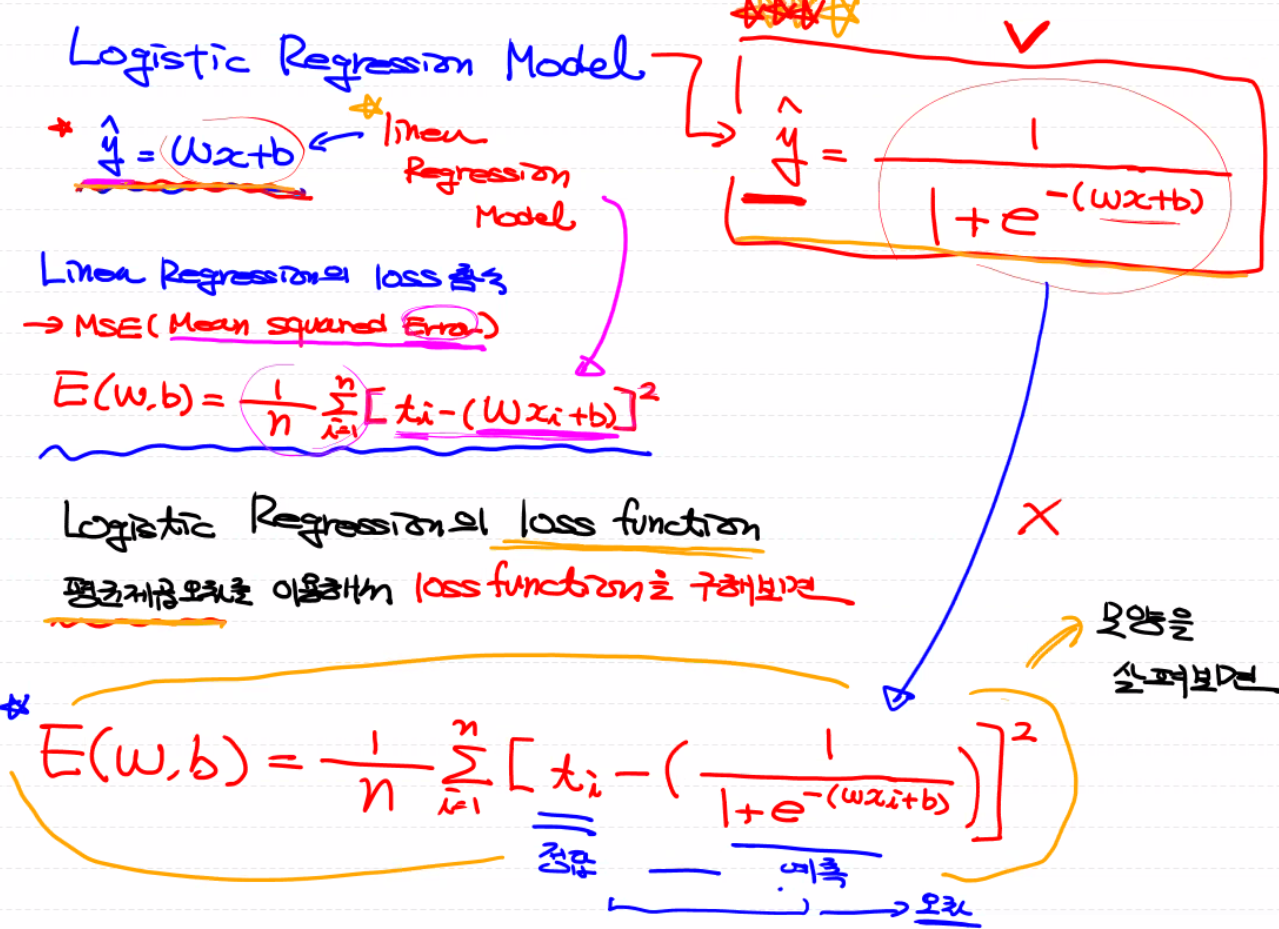 Logistic Regression Model
ŷ = wx+b
linear
Regression
Model
ŷ = 1 / (1 + e^-(wx+b))
Linear Regression의 loss 함수
→ MSE(Mean squared Error)
E(w,b) = 1/n Σ_{i=1}^{n} [t_i - (wx_i+b)]²
Logistic Regression의 loss function
평균제곱오차를 이용해서 loss function을 구해보면
모양을
살펴보면
E(w,b) = 1/n Σ_{i=1}^{n} [t_i - (1 / (1+e^-(wx_i+b)))]²
정답 — 예측
→ 오차